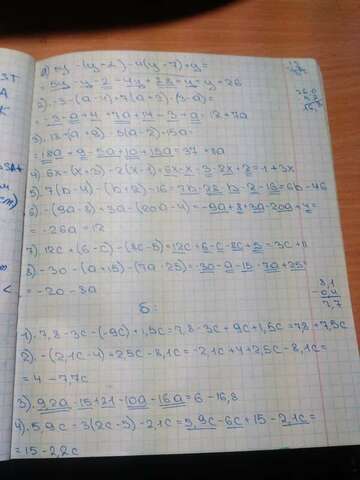 а) 5y-(y-2)-4(y-7)+y=
=5y-y-2-4y+28=y-y+26
2). -3-(a-4)+7(a+2)-(3-a)=
=-3-a+4+7a+14-3+a=12+7a
3). 13-(a+9)-5(a-2)-15a=
=18a+9-5a+10+15a=37+8a
4). 6x-(x+3)-2(x-1)=6x-x-3-2x+2=1+3x
5). 7(b-4)-(b+2)-16=7b-28-b-2-16=6b-46
6). -(9a-8)+3a-(20a-4)=-9a+8+3a-20a+4=
=-26a-12
7). 12c+(6-c)-(8c-5)=12c+6-c-8c+5=3c+11
8). -30-(a+15)-(7a-25)=-30-a-15-7a+25=
=-20-8a
8,1
-0,4
7,7
Б:
1). 7,8-3c-(-9c)+1,5c=7,8-3c+9c+1,5c=7,8+7,5c
2). -(2,1c-4)+2,5c-8,1c=-2,1c+4+2,5c-8,1c=
=4-7,7c
3). 9,2a-15+21-10a-16a=6-16,8
4). 5,9c-3(2c-5)-2,1c=5,9c-6c+15-2,1c=
=15-2,2c